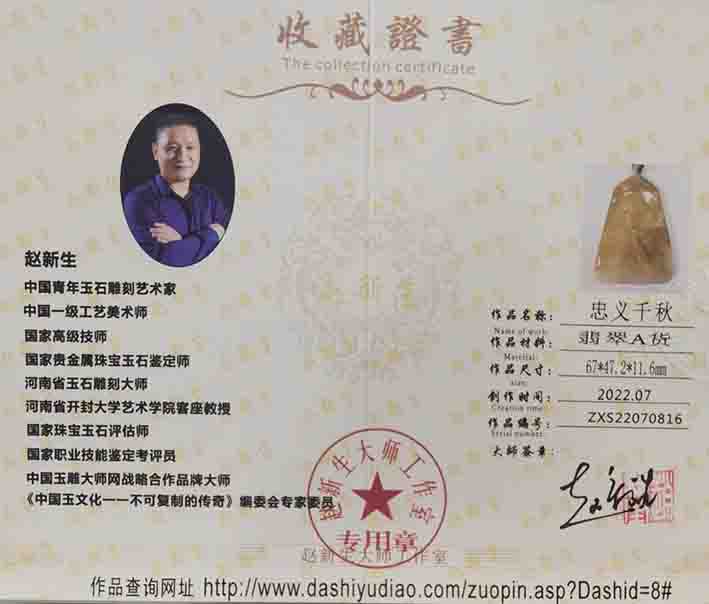 收藏證書
The collection certificate
赵新生
中国青年玉石雕刻艺术家
中国一级工艺美术师
国家高级技师
国家贵金属珠宝玉石鉴定师
河南省玉石雕刻大师
河南省开封大学艺术学院客座教授
国家珠宝玉石评估师
国家职业技能鉴定考评员
中国玉雕大师网战略合作品牌大师
《中国玉文化一一不可复制的传奇》编委会专家委员
作品名称： 忠义千秋
Name of work:
作品材料： 翡翠A货
Material:
作品尺寸： 67*47.2*11.6mm
size:
创作时间： 2022.07
Creation time:
作品编号： ZXS22070816
Serial number:
大师签章：
赵新生大师工作室
专用章
赵新生大师工作室
作品查询网址 http://www.dashiyudiao.com/zuopin.asp?Dashid=8#